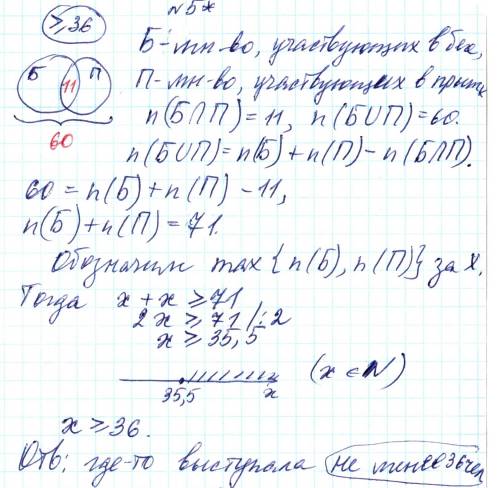 №5*
≥36
Б-мн-во, участвующих в беге,
Б 11 П
П-мн-во, участвующих в прыж
60
n(Б∩П)=11, n(Б∪П)=60.
n(Б∪П)=n(Б)+n(П)-n(Б∩П).
60=n(Б)+n(П)-11,
n(Б)+n(П)=71.
Обозначим max{n(Б),n(П)} за x,
Тогда x+x≥71
2x≥71 |:2
x≥35,5
35,5 x (x∈N)
x≥36.
Отв: где-то выступала не менее 36 чел